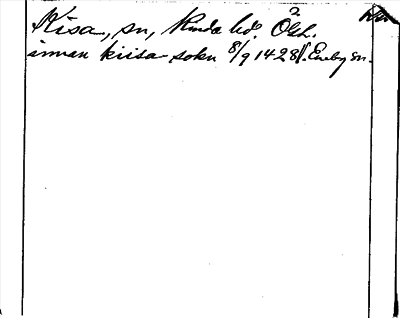 Kisa, sn, Kinda hd. Ögl.
innan kiisa sokn 8/9 1428 Eneby sn.